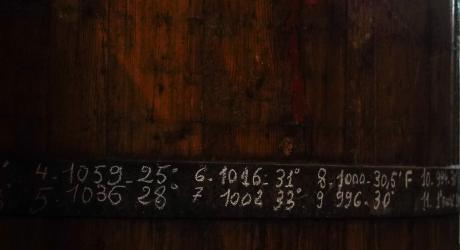 4. 1059-25° 6. 1016-31° 8-1000-30,5° F 10. 994
5. 1036 28° 7 1002 33° 9 996-30° 11.